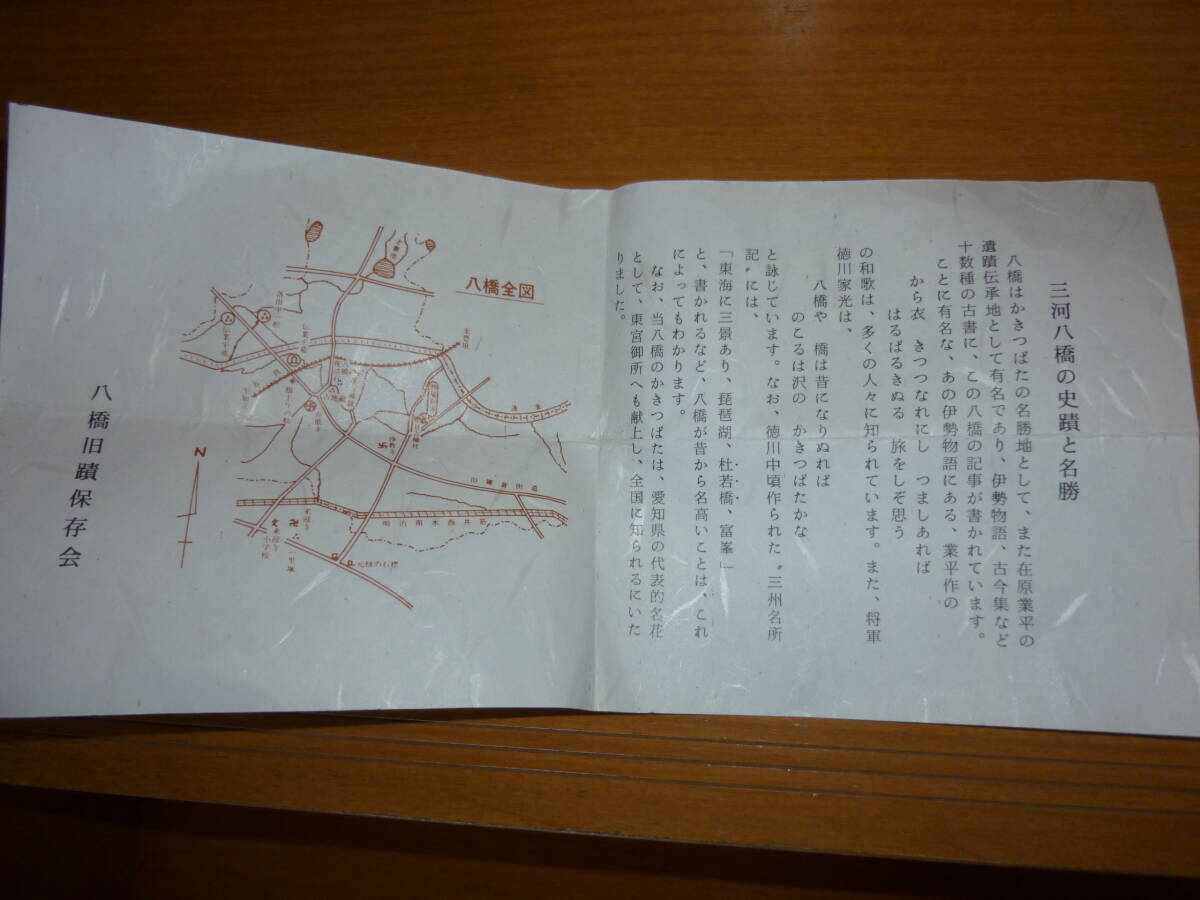 三河八橋の史蹟と名勝
八橋はかきつばたの名勝地として、また在原業平の
遺蹟伝承地として有名であり、伊勢物語、古今集など
十数種の古書に、この八橋の記事が書かれています。
ことに有名な、あの伊勢物語にある、業平作の
から衣　きつつなれにし　つましあれば
はるばるきぬる　旅をしぞ思う
の和歌は、多くの人々に知られています。また、将軍
徳川家光は、
八橋や　橋は昔になりぬれば
のこるは沢の　かきつばたかな
と詠じています。なお、徳川中頃作られた〝三州名所
記〟には、
「東海に三景あり、琵琶湖、杜若橋、富峯」
と、書かれるなど、八橋が昔から名高いことは、これ
によってもわかります。
なお、当八橋のかきつばたは、愛知県の代表的名花
として、東宮御所へも献上し、全国に知られるにいた
りました。
八橋全図
山磯倉街道
明治用水西井筋
来迎寺
小学校
一里塚
元禄の石標
N
八橋旧蹟保存会